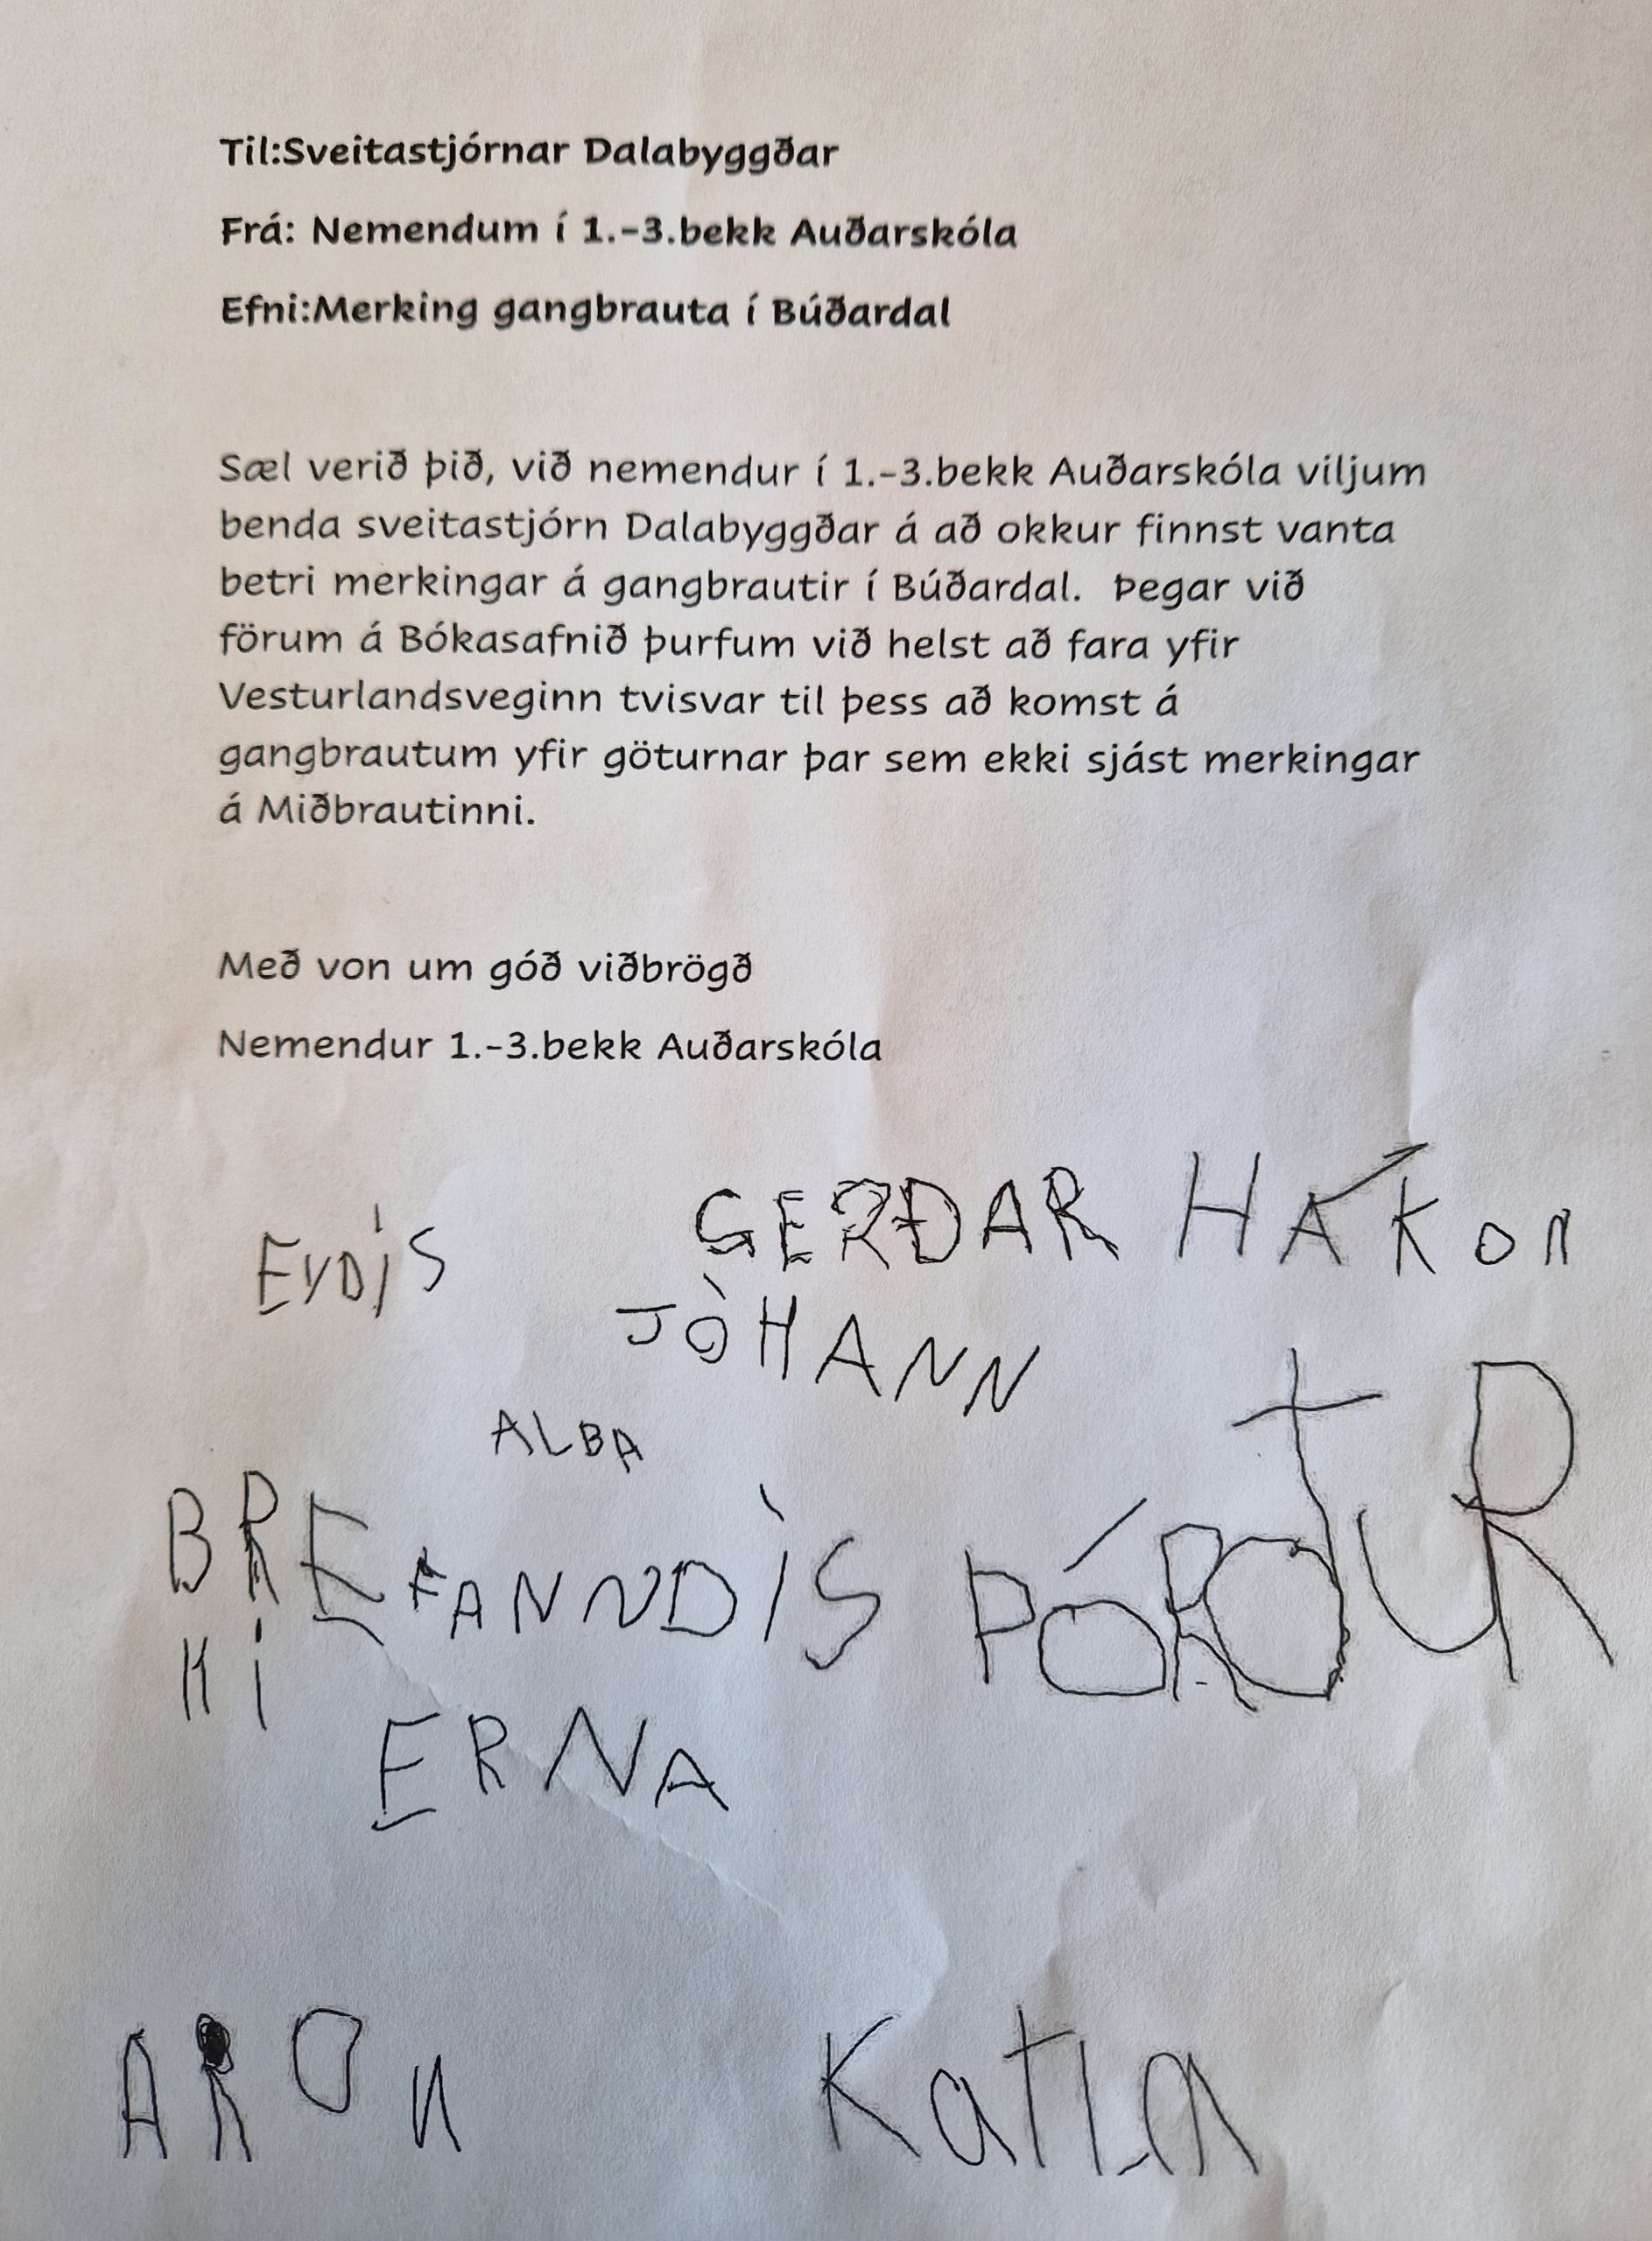 Til:Sveitastjórnar Dalabyggðar
Frá: Nemendum í 1.-3.bekk Auðarskóla
Efni:Merking gangbrauta í Búðardal
Sæl verið þið, við nemendur í 1.-3.bekk Auðarskóla viljum
benda sveitastjórn Dalabyggðar á að okkur finnst vanta
betri merkingar á gangbrautir í Búðardal. Þegar við
förum á Bókasafnið þurfum við helst að fara yfir
Vesturlandsveginn tvisvar til þess að komst á
gangbrautum yfir göturnar þar sem ekki sjást merkingar
á Miðbrautinni.
Með von um góð viðbrögð
Nemendur 1.-3.bekk Auðarskóla
EYDÍS
GERÐAR HÁKON
JÒHANN
ALBA
ÞÓRÐUR
ERNA
ARON
Katla